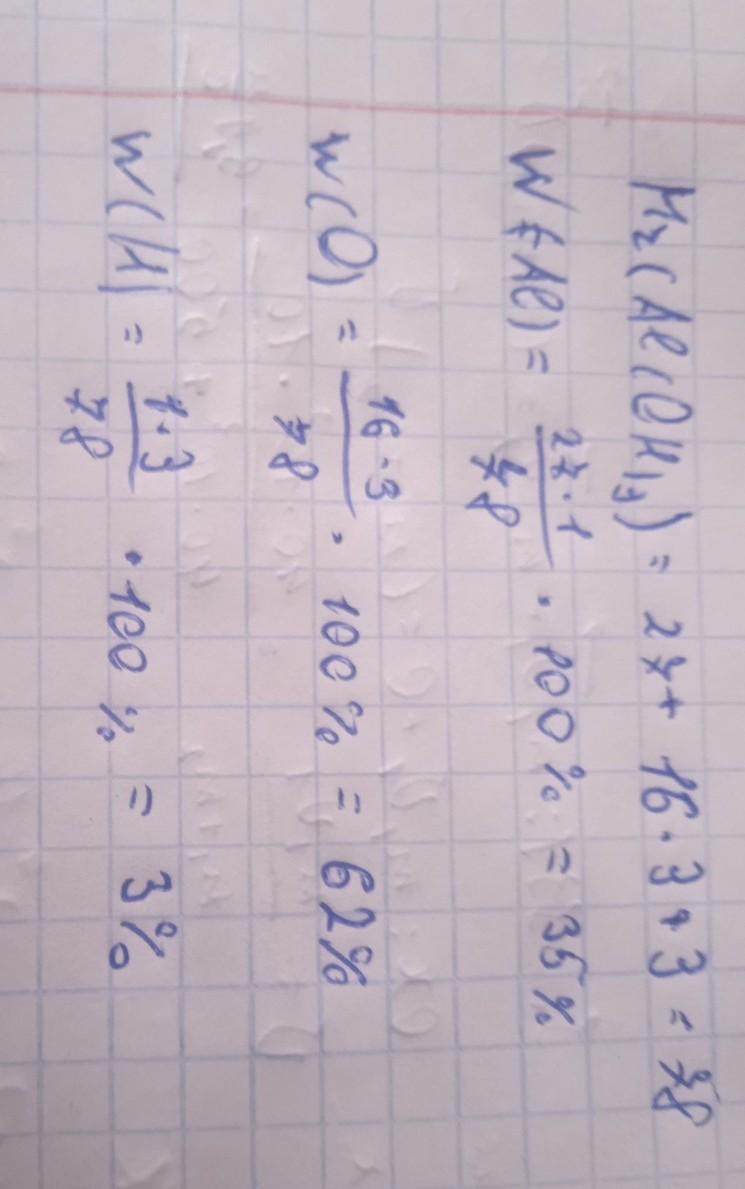 Mr(Al(OH)3) = 27 + 16 · 3 + 3 = 78
W(Al) = 27·1/78 · 100% = 35%
w(O) = 16·3/78 · 100% = 62%
w(H) = 1·3/78 · 100% = 3%